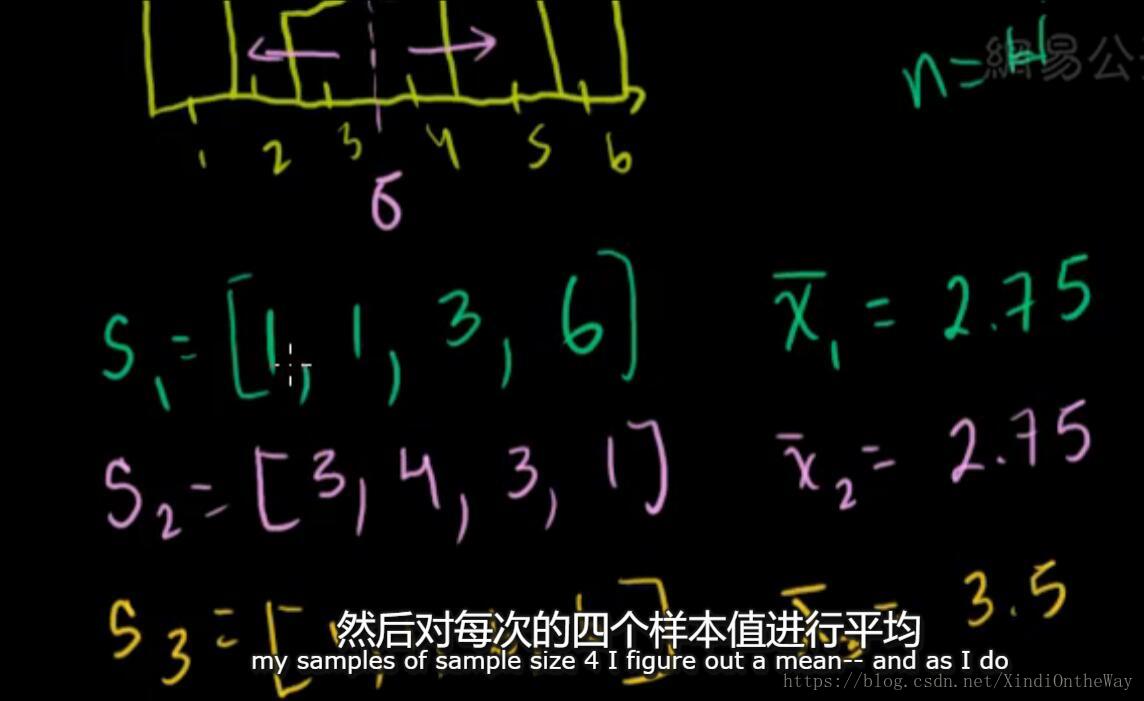 n=4
網易公
1 2 3 4 5 6
6
S₁ = [1, 1, 3, 6] x̄₁ = 2.75
S₂ = [3, 4, 3, 1] x̄₂ = 2.75
S₃ = [ 3.5
然后对每次的四个样本值进行平均
my samples of sample size 4 I figure out a mean-- and as I do
https://blog.csdn.net/XindiOntheWay